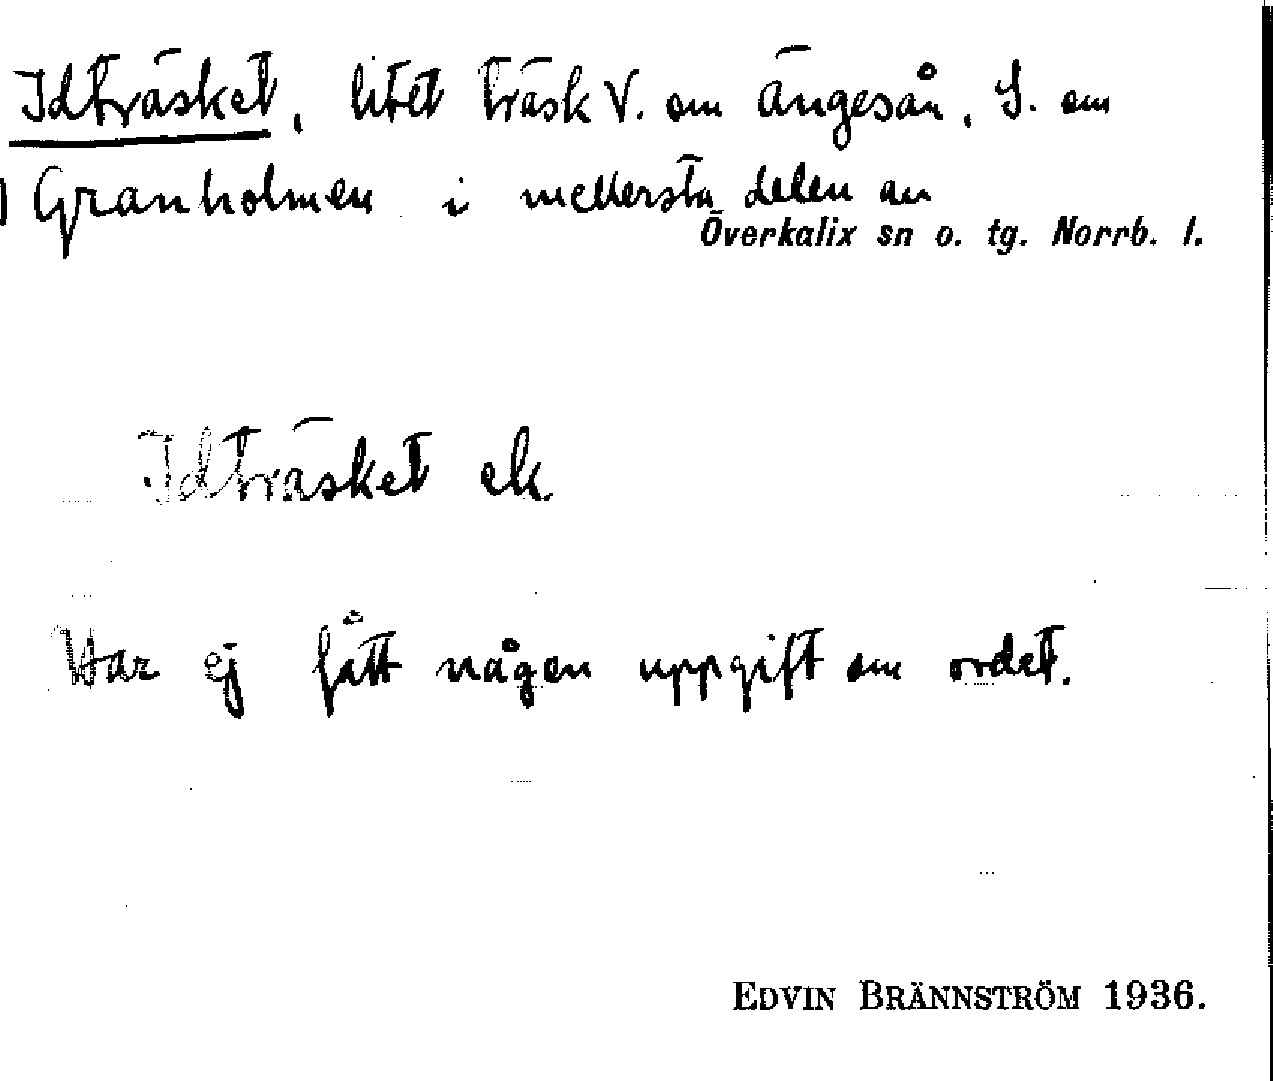 Idträsket, litet träsk V. om Ängesån, S. om
Granholmen i mellersta delen av
Överkalix sn o. tg. Norrb. l.
Idträsket ek
Har ej fått någon uppgift om ordet.
EDVIN BRÄNNSTRÖM 1936.